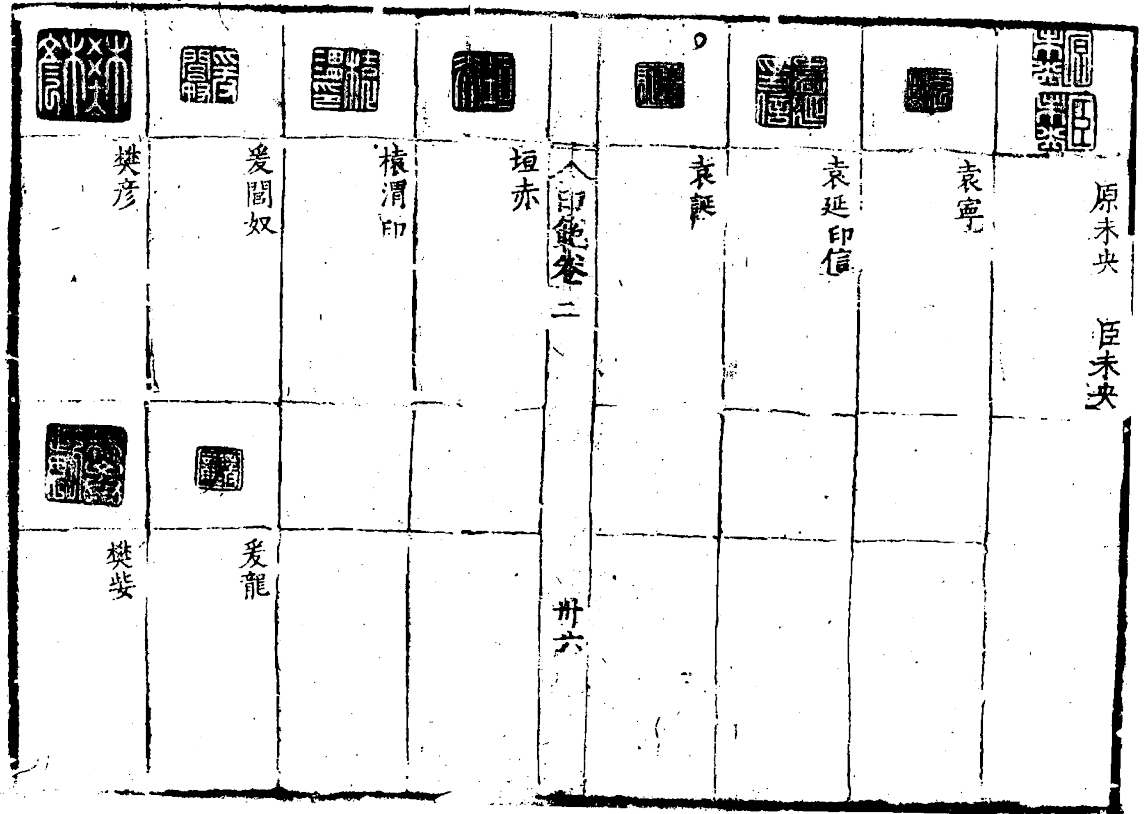 原未央 臣未央
袁寧
袁延印信
袁誕
印範卷二
卅六
垣赤
榬渭印
爰閭奴
爰龍
樊彦
樊